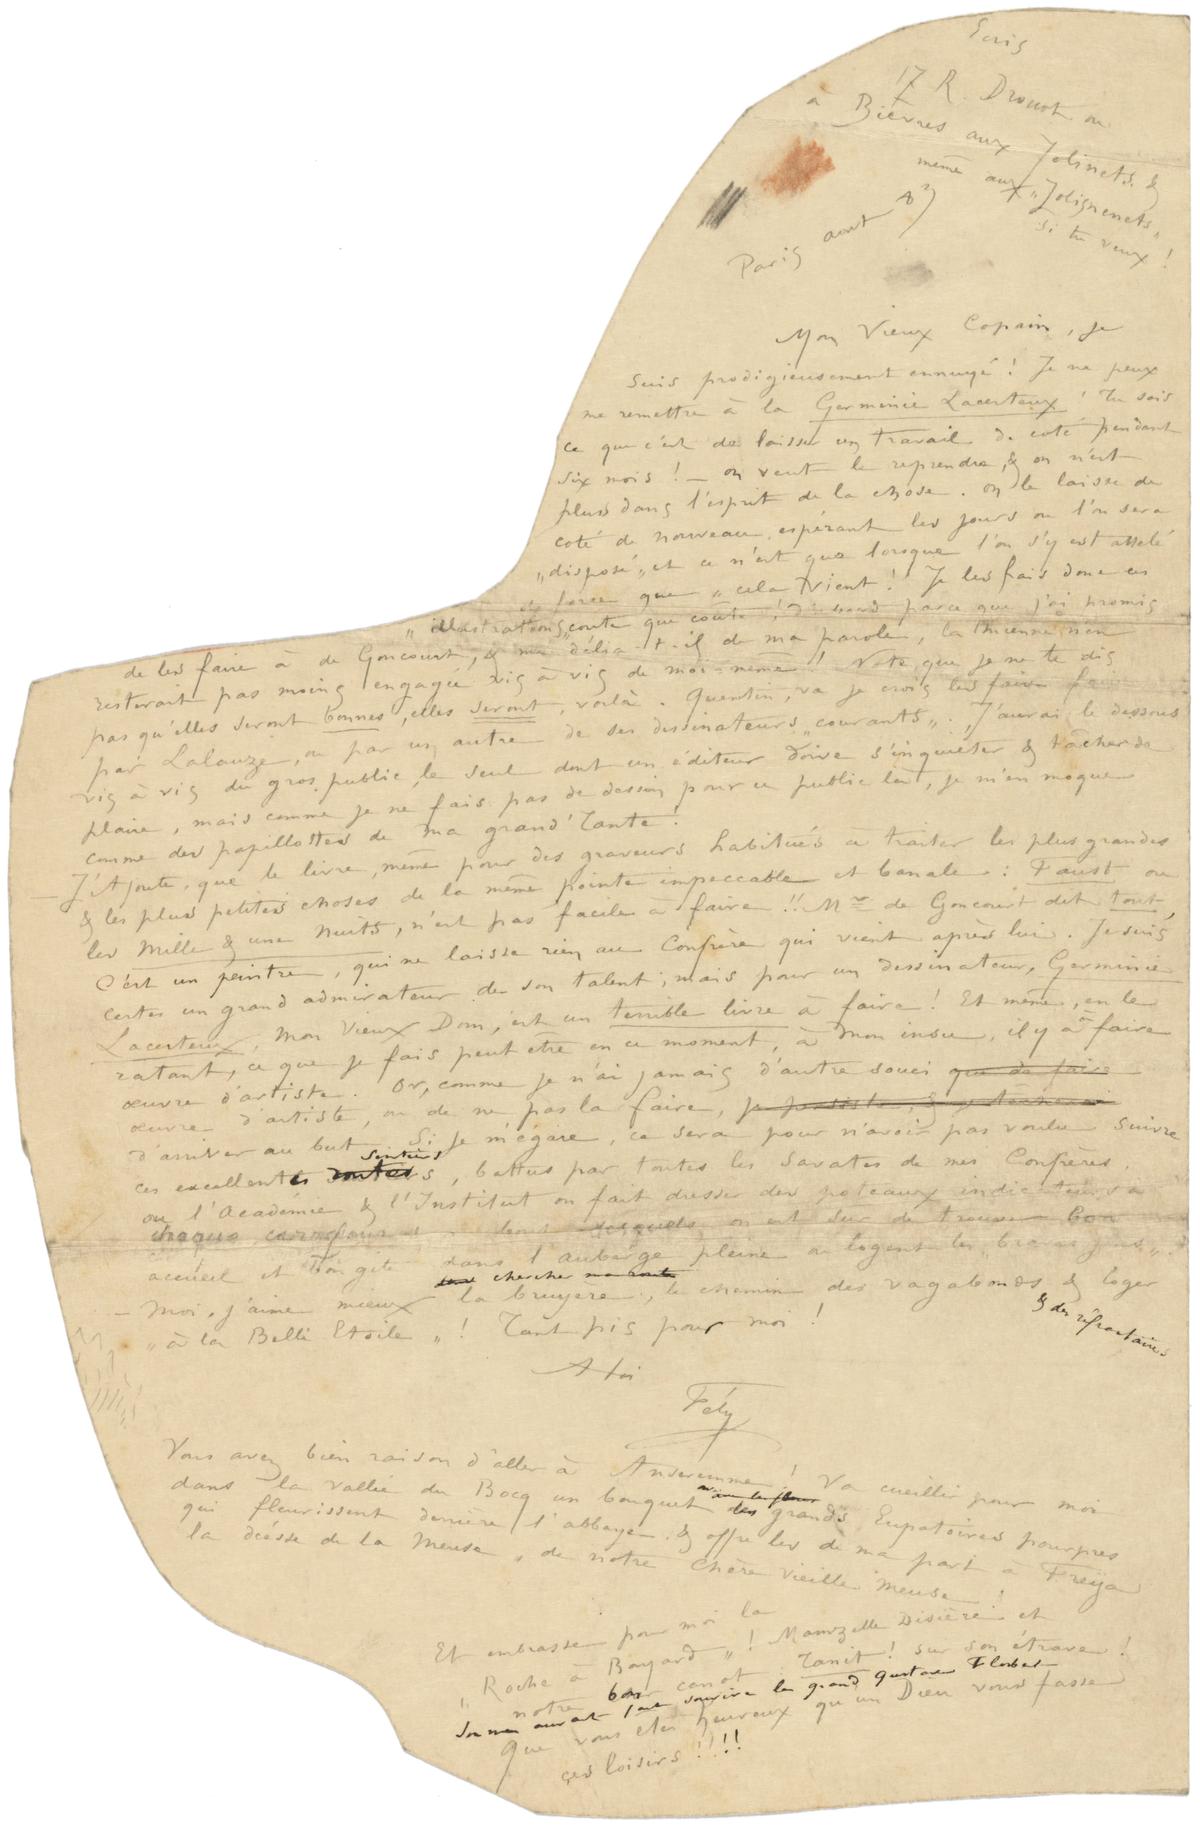 Ecris
17 R. Drouot ou
à Bièvres aux Jolinets &
même aux „Jolignenets„
si tu veux !
Paris aout 87
Mon Vieux Copain, je
suis prodigieusement ennuyé ! Je ne peux
me remettre à la Germinie Lacerteux ! Tu sais
ce que c'est de laisser un travail de coté pendant
six mois ! — on veut le reprendre, & on n'est
plus dans l'esprit de la chose. on le laisse de
coté de nouveau, espérant les jours ou l'on sera
„disposé„ et ce n'est que lorsque l'on s'y est attelé
de force que „cela vient ! Je les fais donc ces
„illustrations„ coute que coûte ! D'abord parce que j'ai promis
de les faire à de Goncourt, & me délia-t-il de ma parole, la mienne n'en
resterait pas moins engagée vis à vis de moi-même ! Note, que je ne te dis
pas qu'elles seront bonnes, elles seront, voilà. Quentin, va je crois les faire
par Lalauze, ou par un autre de ses dessinateurs „courants„. J'aurai le dessous
vis à vis du gros public, le seul dont un éditeur doive s'inquiéter & tacher de
plaire, mais comme je ne fais pas de dessin pour ce public là, je m'en moque
comme des papillottes de ma grand'Tante !
— J'ajoute, que le livre, même pour des graveurs habitués à traiter les plus grandes
& les plus petites choses de la même pointe impeccable et banale : Faust ou
les Mille & une Nuits, n'est pas facile à faire !! Mr de Goncourt dit tout,
C'est un peintre, qui ne laisse rien au Confrère qui vient après lui. Je suis
certes un grand admirateur de son talent ; mais pour un dessinateur, Germinie
Lacerteux, mon Vieux Dom, est un terrible livre à faire ! Et même, en le
ratant, ce que je fais peut être en ce moment, à mon insu, il y a à faire
œuvre d'artiste. Or, comme je n'ai jamais d'autre souci que de faire
œuvre d'artiste, ou de ne pas la faire, je persiste, & je tacherai
d'arriver au but. Si je m'égare, ce sera pour n'avoir pas voulu suivre
sentiers
ces excellents routes, battus par toutes les Savates de mes Confrères.
ou l'Académie & l'Institut on fait dresser des poteaux indicateurs à
chaque carrefour desquels on est sur de trouver bon
accueil et bon gite dans l'auberge pleine ou logent les „braves gens„.
chercher ma route
— Moi, j'aime mieux la bruyère, le chemin des vagabonds & loger
& des réfractaires
„à la Belle Etoile„ ! Tant pis pour moi !
A toi
Fély
Vous avez bien raison d'aller à Anseremme ! Va cueillir pour moi
dans la vallée du Bocq un bouquet des grands Eupatoires pourpres
qui fleurissent derrière l'abbaye. & offre les de ma part à Freÿa
la déesse de la Meuse, de notre chère vieille Meuse !
Et embrasse pour moi la
„Roche à Bayard„ ! Mamzelle Disière et
notre bon canot Tanit ! sur son étrave !
aurait fait sourire le grand Gustave Flobert
Que vous etes heureux qu'un Dieu vous fasse
ces loisirs !!!!